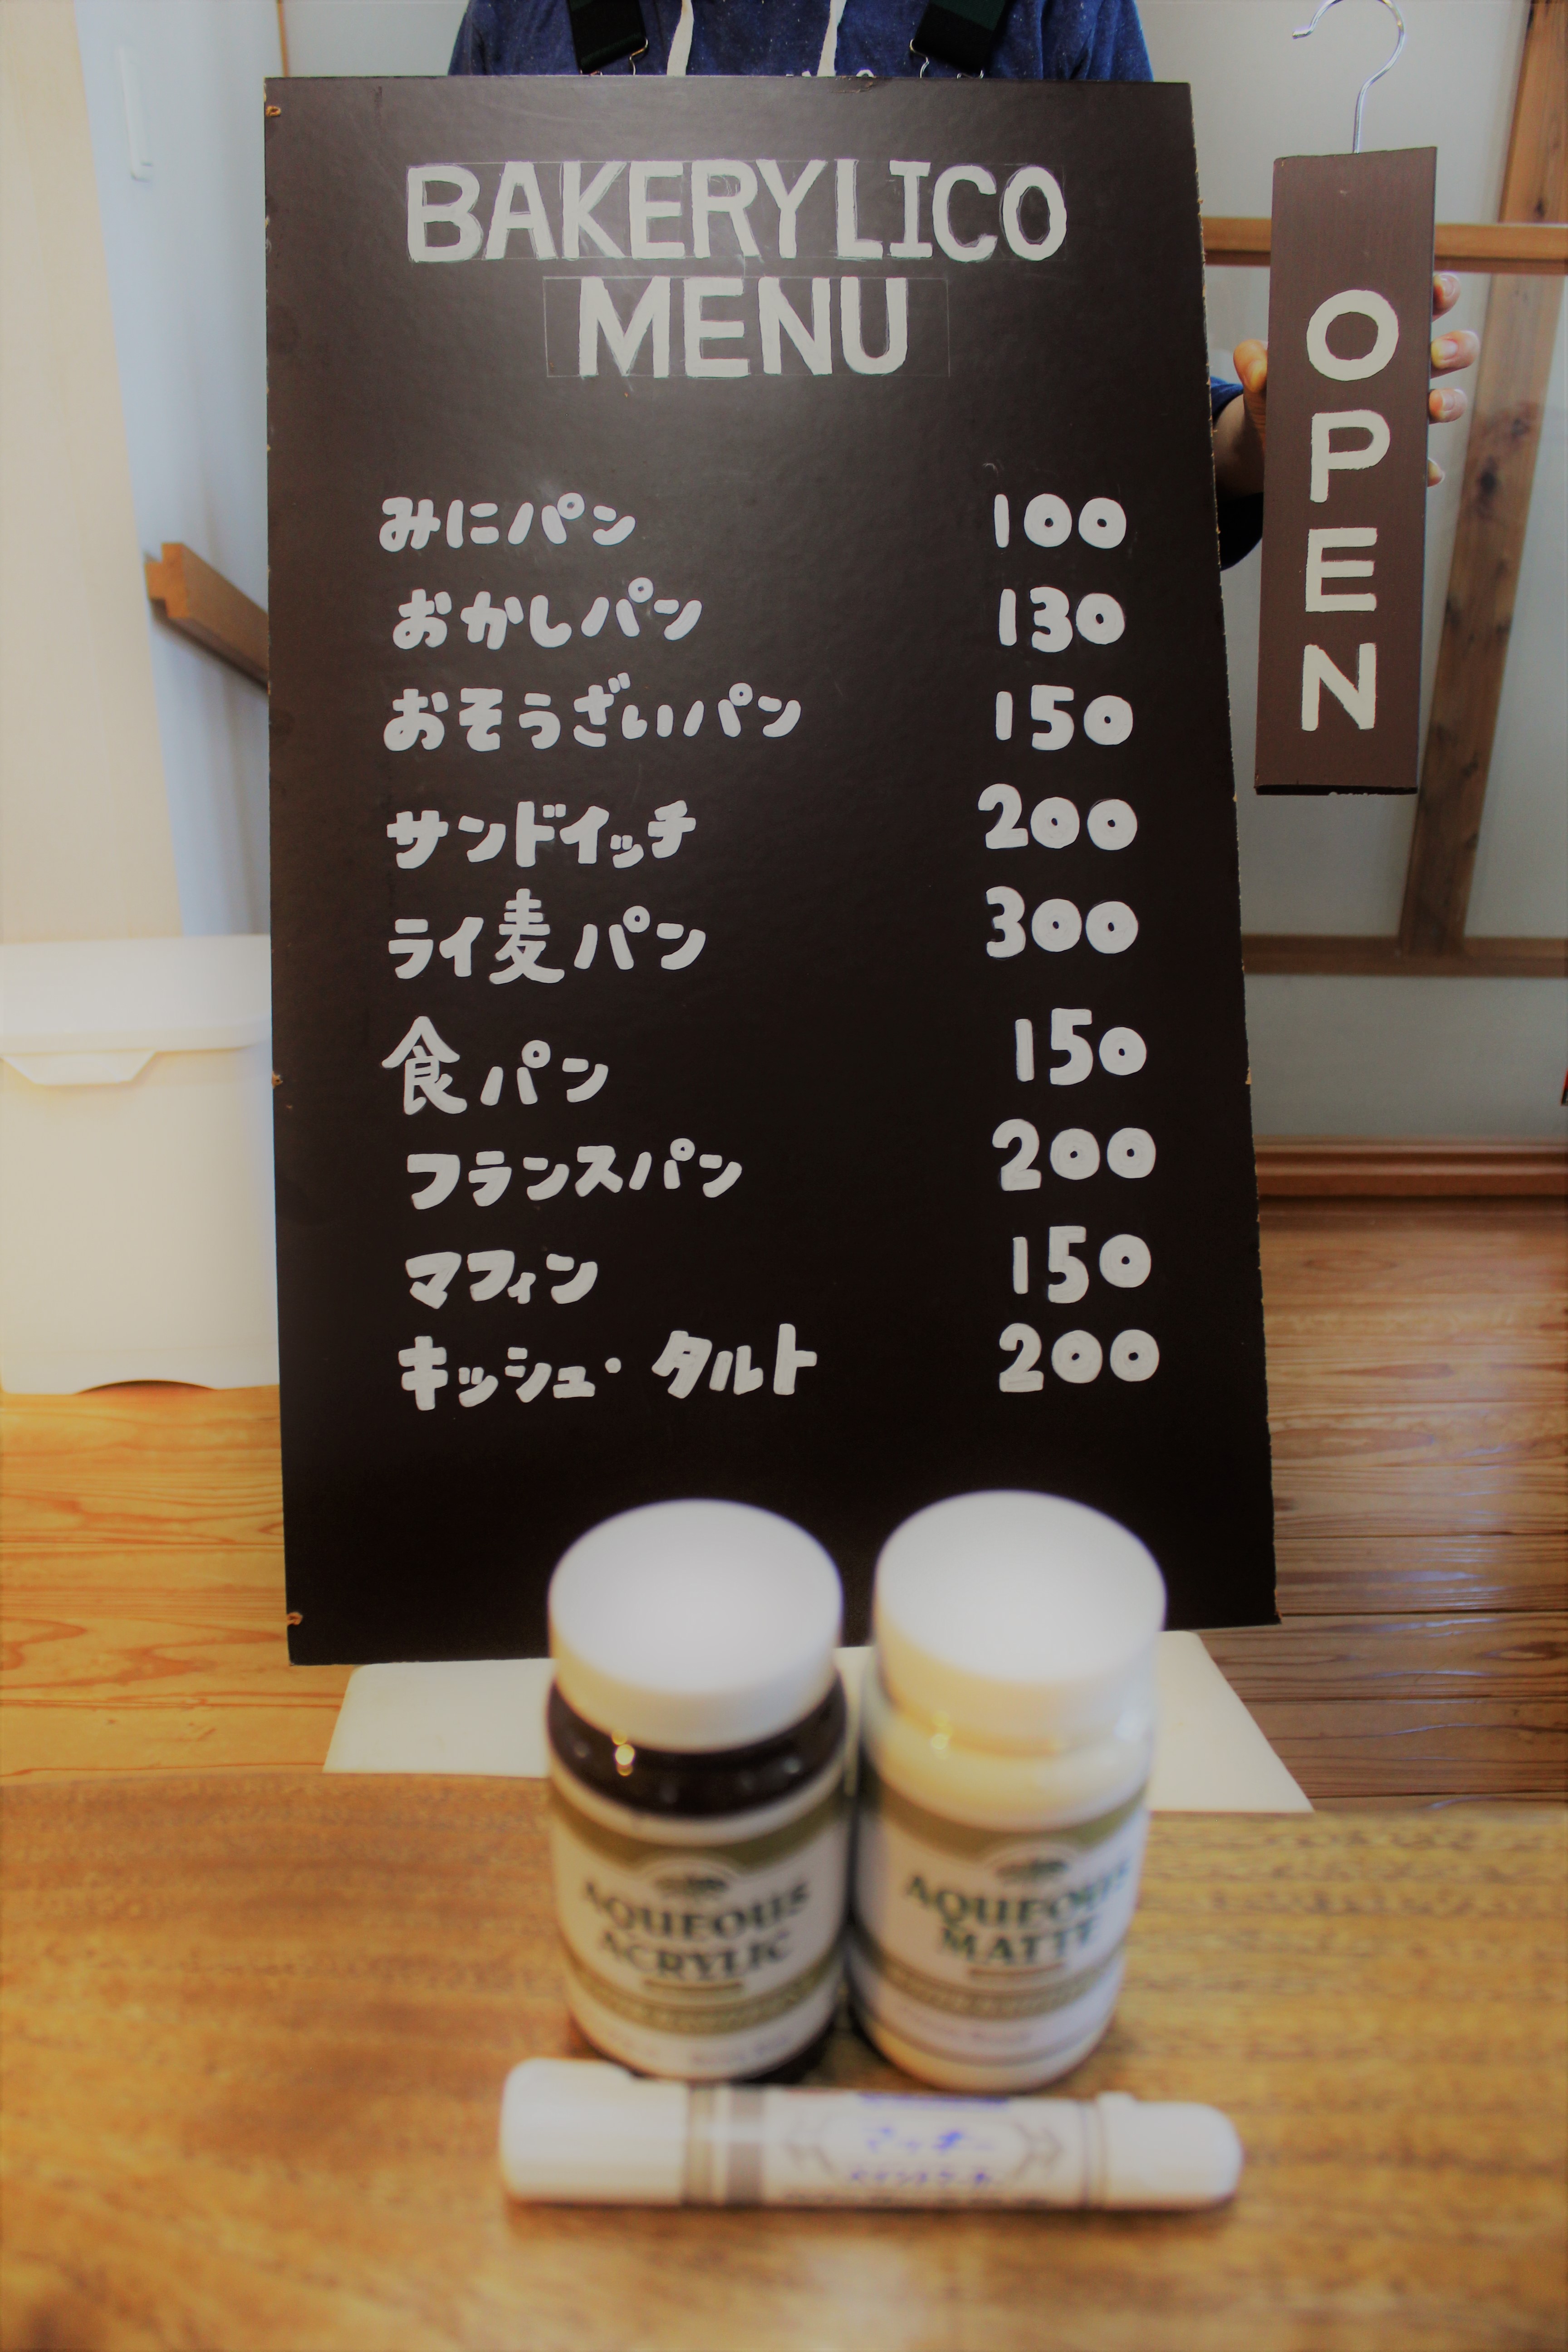 BAKERY LICO
MENU
みにパン 100
おかしパン 130
おそうざいパン 150
サンドイッチ 200
ライ麦パン 300
食パン 150
フランスパン 200
マフィン 150
キッシュ・タルト 200
OPEN
AQUEOUS
ACRYLIC
AQUEOUS
MATTE